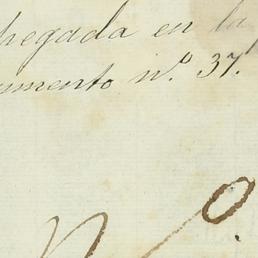 hegada en la
umento n.º 37.
N.º